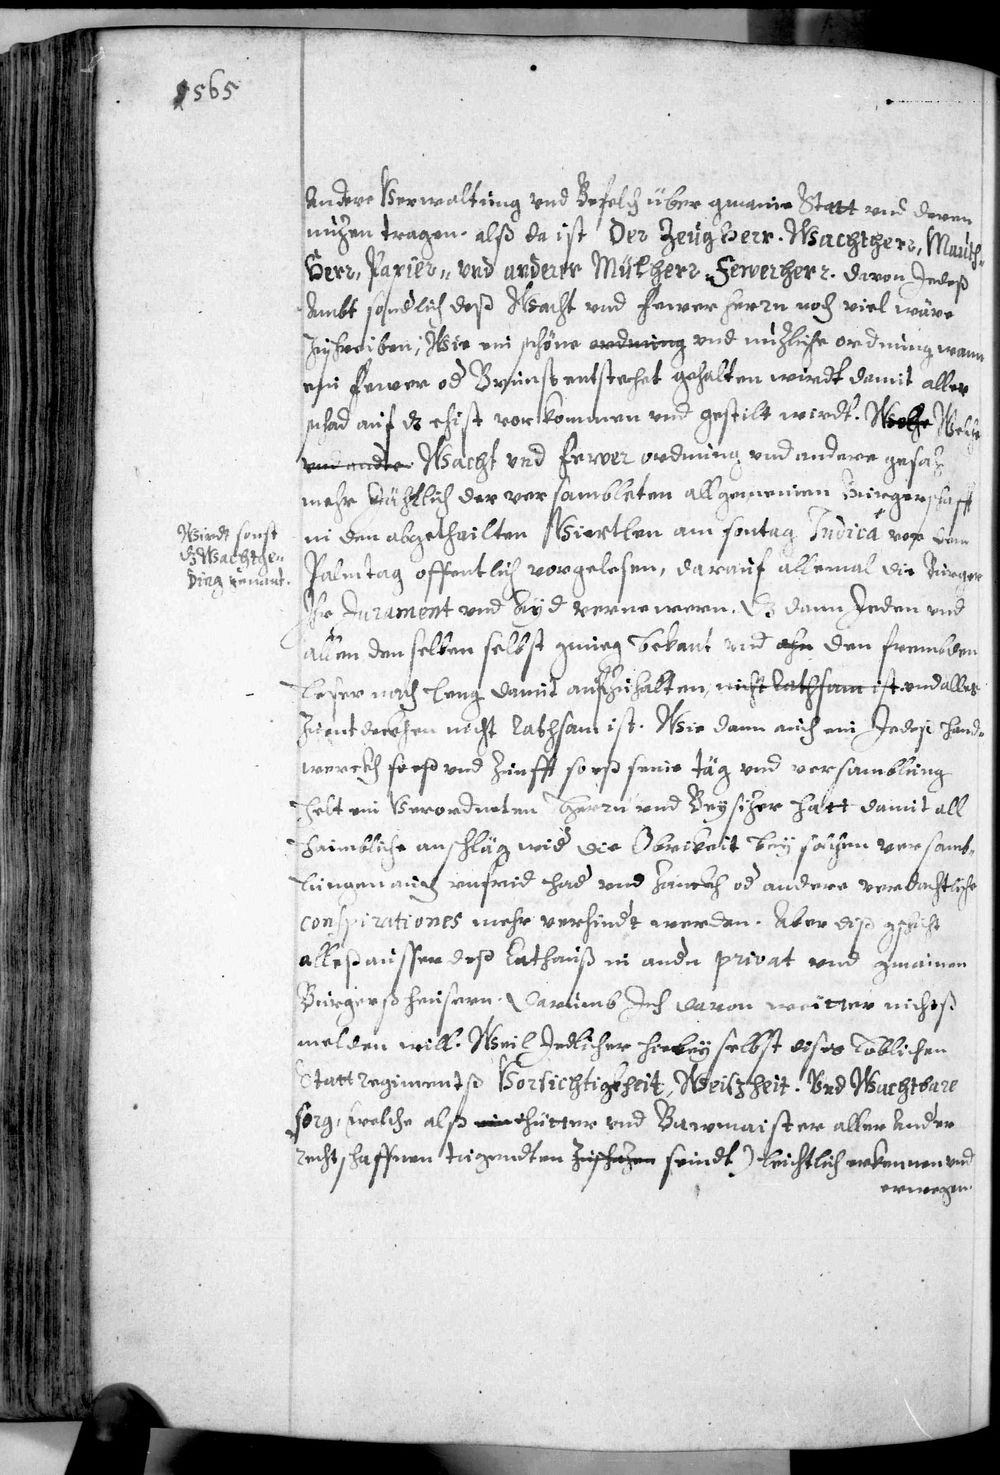 1565
Andere Verwaltung vnd Befelch über gmaine Statt vnd deren
nuzen tragen. alß da ist Der Zeugherr. Wachtherr, Mauth-
Herr, Papier,, vnd anderer Mülherr. Fewerherr. davon Jedeß
Ambt sondlich deß Wacht vnd fewer herrn noch viel wäre
zuschreiben, Wie ein schöne ordnung vnd nuzliche ordnung wann
ein fewer od Brunst entstehet gehalten wirdt damit aller
schad auf dz ehist vorkommen vnd gestilt wirdt. Welche Welche
vnd andere Wacht vnd fewer ordnung vnd andere gesaz
mehr Jährlich der versambleten allgemeinen Burgerschafft
in den abgetheilten Viertlen am sontag Judica vor dem
Wirdt sonst
dz Wachtge-
Ding genant.
Palmtag offentlich vorgelesen, darauf allemal die Burger
Ihr Jurament vnd Ayd vernewern. Dz dann Jeden vnd
allen denselben selbst gnueg bekant vnd den frembden
leser nach leng damit aufzuhalten, nicht rathsam ist vnd alles
zuentdeckhen nicht rathsam ist. Wie dann auch ein Jedes handt-
werckh vnd Zunfft so offt seine täg vnd versamblung
helt ein Verordneten Herrn vnd Beysizer hatt damit all
haimbliche anschläg wid die Obrikeit bey solchen versamb-
lungen auch vnfrid had vnd Zanckh od andere verdachtliche
conspirationes mehr verhindt werden. Aber diß gschicht
alleß ausser deß Rathauß in andn privat vnd gmainen
Burgerß heusern. Darumb Ich davon weitter nichtß
melden will. Weil Jedlicher hiebey selbst dises loblichen
Statt regimentß Vorsichtigkheit, Weißheit. Vnd Wachtbare
sorg, (welche alß hütter vnd Bawmaister aller Ander
rechtschaffnen tugendten seindt) leichtlich erkennen vnd
erwegen.